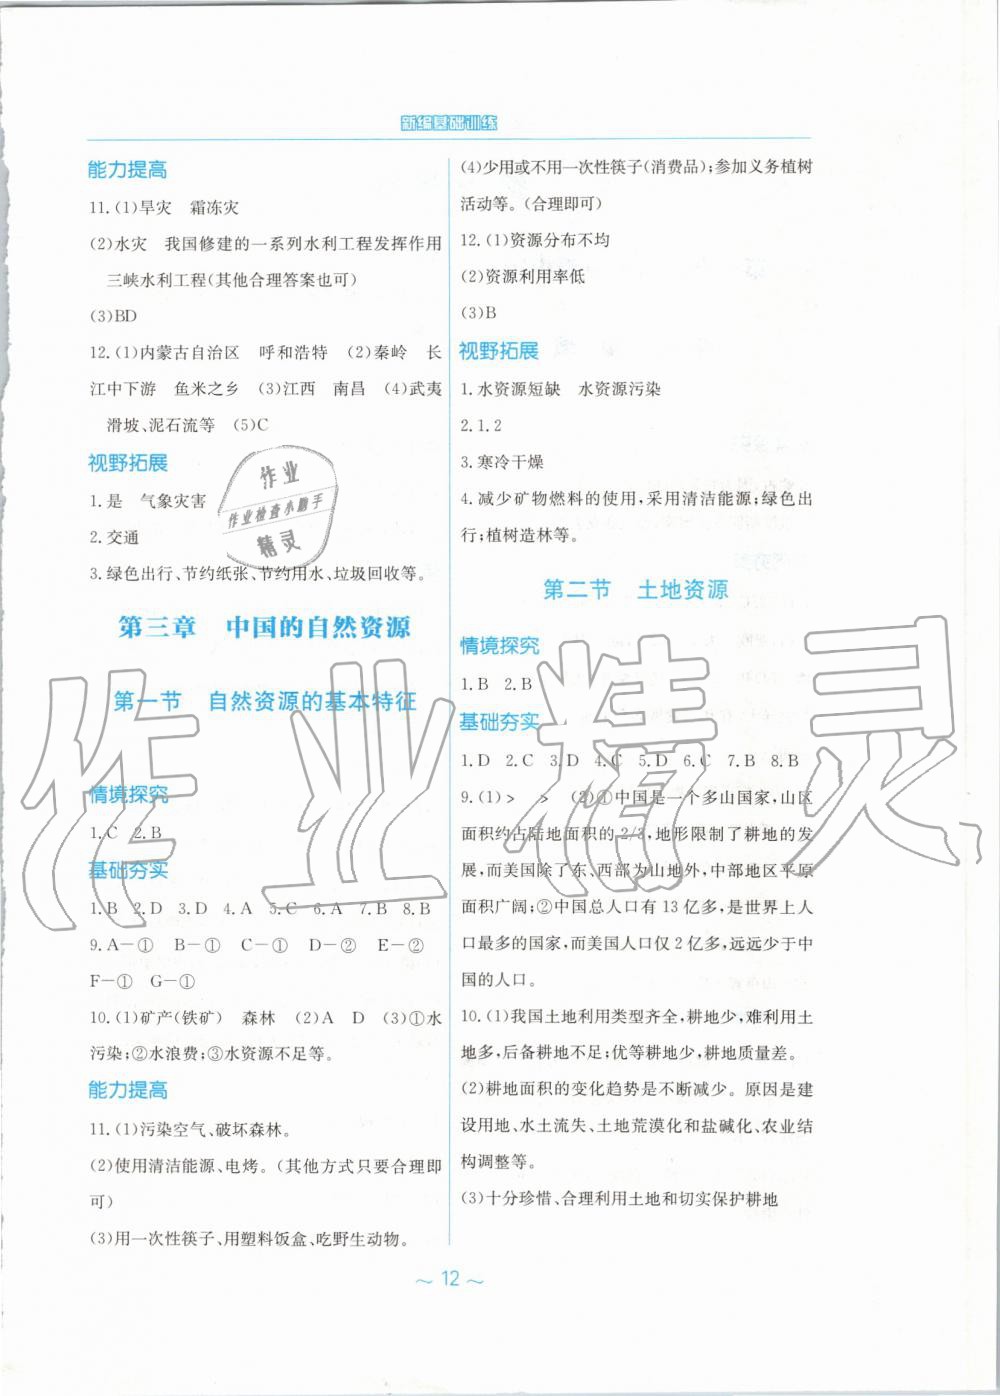 新编基础训练
能力提高
11.(1)旱灾　霜冻灾
(2)水灾　我国修建的一系列水利工程发挥作用
三峡水利工程(其他合理答案也可)
(3)BD
12.(1)内蒙古自治区　呼和浩特　(2)秦岭　长
江中下游　鱼米之乡　(3)江西　南昌　(4)武夷
滑坡、泥石流等　(5)C
视野拓展
1.是　气象灾害
2.交通
3.绿色出行、节约纸张、节约用水、垃圾回收等。
第三章　中国的自然资源
第一节　自然资源的基本特征
情境探究
1.C　2.B
基础夯实
1.B　2.D　3.D　4.A　5.C　6.A　7.B　8.B
9.A—①　B—①　C—①　D—②　E—②
F—①　G—①
10.(1)矿产(铁矿)　森林　(2)A　D　(3)①水
污染;②水浪费;③水资源不足等。
能力提高
11.(1)污染空气、破坏森林。
(2)使用清洁能源、电烤。(其他方式只要合理即
可)
(3)用一次性筷子、用塑料饭盒、吃野生动物。
(4)少用或不用一次性筷子(消费品);参加义务植树
活动等。(合理即可)
12.(1)资源分布不均
(2)资源利用率低
(3)B
视野拓展
1.水资源短缺　水资源污染
2.1.2
3.寒冷干燥
4.减少矿物燃料的使用,采用清洁能源;绿色出
行;植树造林等。
第二节　土地资源
情境探究
1.B　2.B
基础夯实
1.D　2.C　3.D　4.C　5.D　6.C　7.B　8.B
9.(1)>　>　(2)①中国是一个多山国家,山区
面积约占陆地面积的2/3,地形限制了耕地的发
展,而美国除了东、西部为山地外,中部地区平原
面积广阔;②中国总人口有13亿多,是世界上人
口最多的国家,而美国人口仅2亿多,远远少于中
国的人口。
10.(1)我国土地利用类型齐全,耕地少,难利用土
地多,后备耕地不足;优等耕地少,耕地质量差。
(2)耕地面积的变化趋势是不断减少。原因是建
设用地、水土流失、土地荒漠化和盐碱化、农业结
构调整等。
(3)十分珍惜、合理利用土地和切实保护耕地
～12～
作业
作业检查小助手
精灵
作业精灵